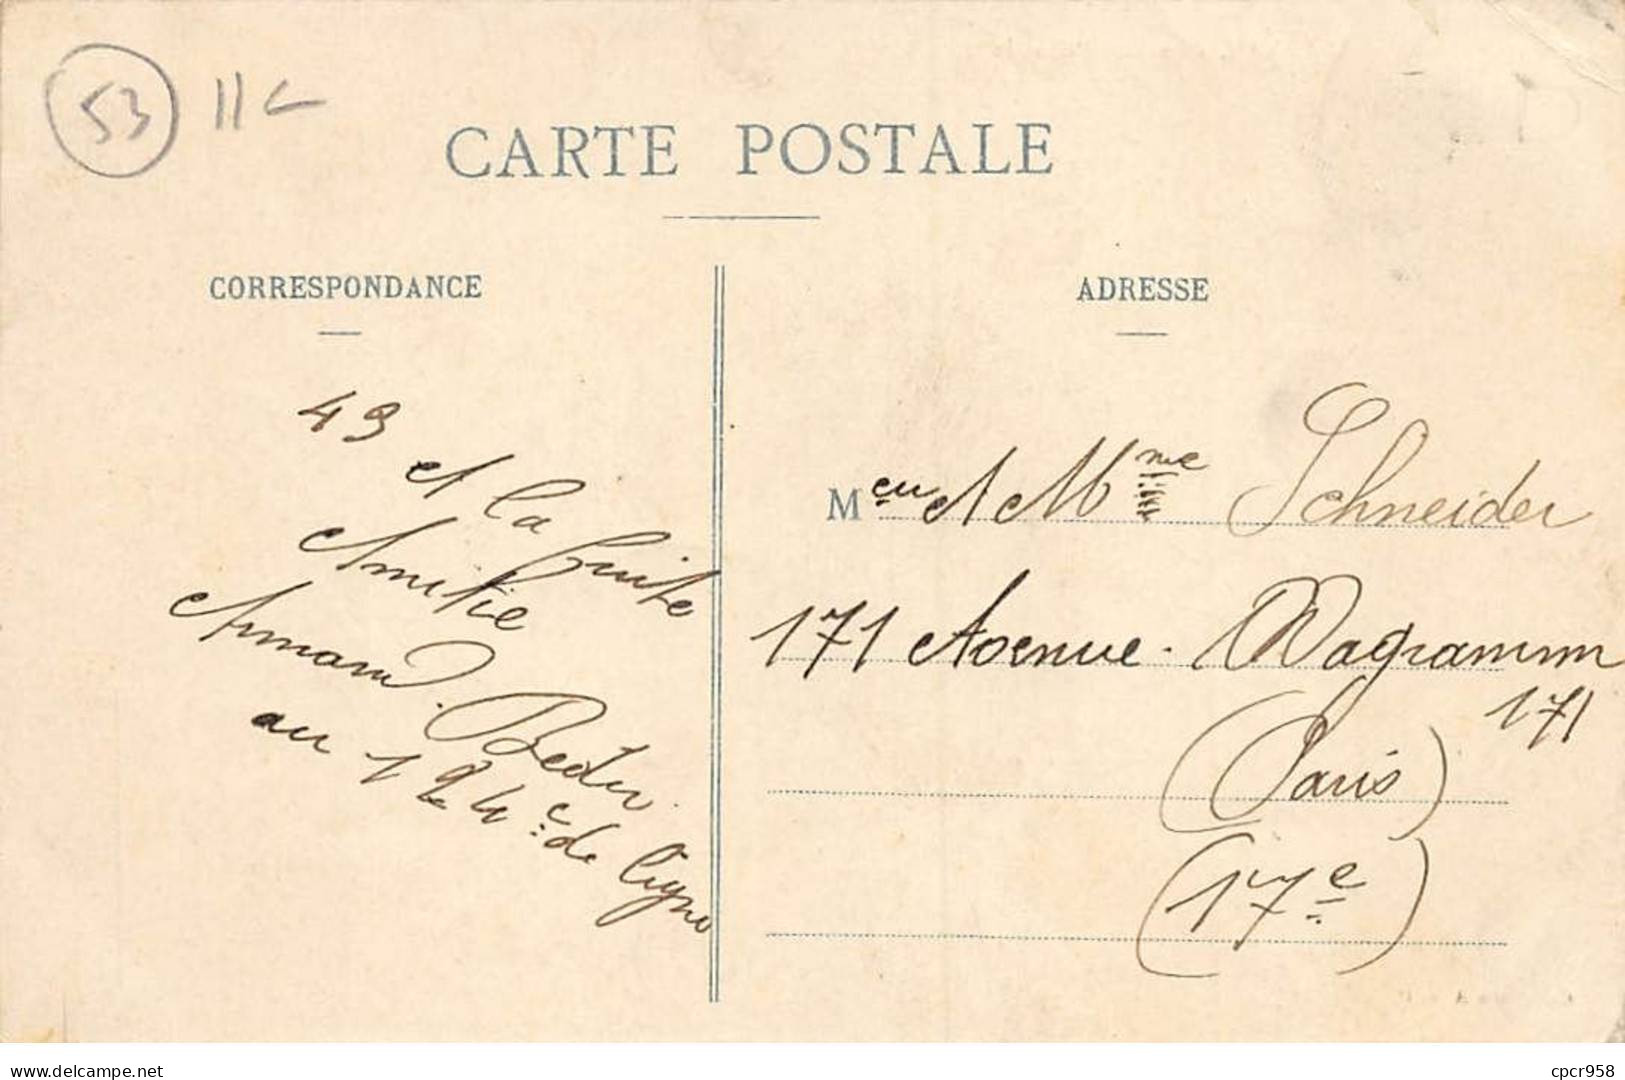 53 11c
CARTE POSTALE
CORRESPONDANCE
ADRESSE
43
et la fuite
Amitié
Armand. Bedu
au 124e de ligne
Meu et Mme Schneider
171 Avenue. Wagramm
171
(Paris)
(17e)
delcampe.net
cpcr958